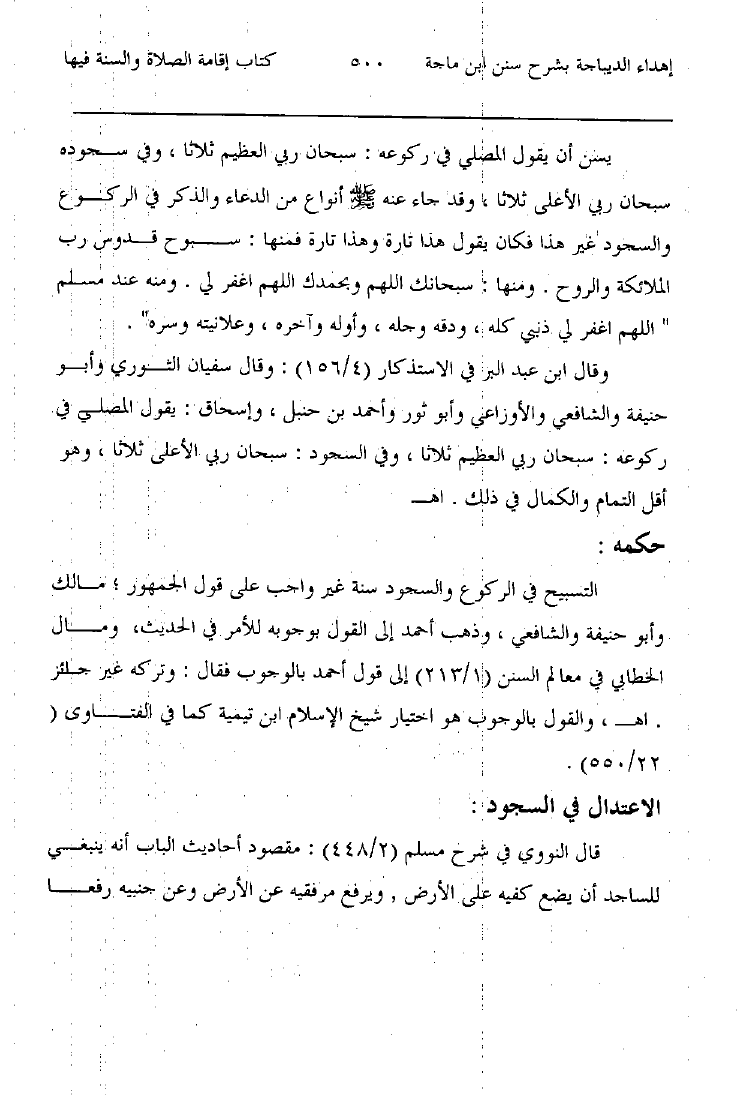 إهداء الديباجة بشرح سنن ابن ماجة ٥٠٠ كتاب إقامة الصلاة والسنة فيها
يسن أن يقول المصلي في ركوعه : سبحان ربي العظيم ثلاثا ، وفي سجوده
سبحان ربي الأعلى ثلاثا ، وقد جاء عنه ﷺ أنواع من الدعاء والذكر في الركوع
والسجود غير هذا فكان يقول هذا تارة وهذا تارة فمنها : سبوح قدوس رب
الملائكة والروح . ومنها : سبحانك اللهم وبحمدك اللهم اغفر لي . ومنه عند مسلم
" اللهم اغفر لي ذنبي كله ، ودقه وجله ، وأوله وآخره ، وعلانيته وسره" .
وقال ابن عبد البر في الاستذكار (١٥٦/٤) : وقال سفيان الثوري وأبو
حنيفة والشافعي والأوزاعي وأبو ثور وأحمد بن حنبل ، وإسحاق : يقول المصلي في
ركوعه : سبحان ربي العظيم ثلاثا ، وفي السجود : سبحان ربي الأعلى ثلاثا ، وهو
أقل التمام والكمال في ذلك . اهـ
حكمه :
التسبيح في الركوع والسجود سنة غير واجب على قول الجمهور ؛ مالك
وأبو حنيفة والشافعي ، وذهب أحمد إلى القول بوجوبه للأمر في الحديث، ومال
الخطابي في معالم السنن (٢١٣/١) إلى قول أحمد بالوجوب فقال : وتركه غير جائز
. اهـ ، والقول بالوجوب هو اختيار شيخ الإسلام ابن تيمية كما في الفتاوى (
٥٥٠/٢٢) .
الاعتدال في السجود :
قال النووي في شرح مسلم (٤٤٨/٢) : مقصود أحاديث الباب أنه ينبغي
للساجد أن يضع كفيه على الأرض , ويرفع مرفقيه عن الأرض وعن جنبيه رفعا